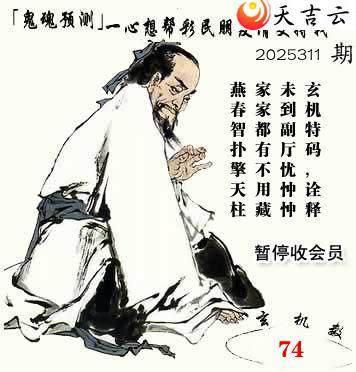 天吉云
「鬼魂预测」一心想帮彩民朋
2025311 期
玄机特码，诠释
未到副厅忧忡忡
家家都有不用藏
燕春智扑擎天柱
暂停收会员
玄机数
74